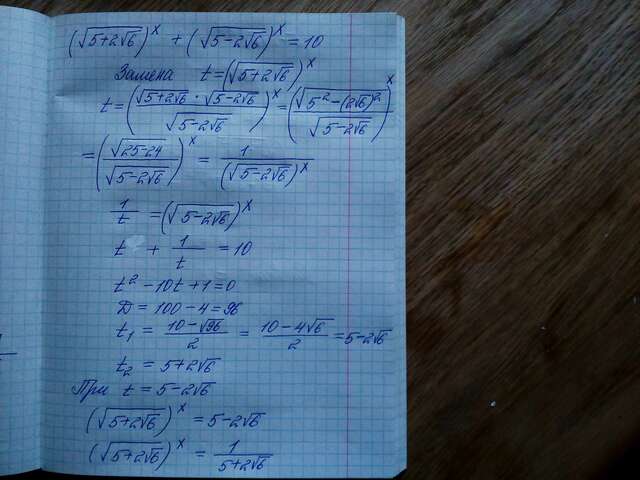 (√5+2√6)^x + (√5-2√6)^x = 10
Замена t=(√5+2√6)^x
t=(√5+2√6 · √5-2√6 / √5-2√6)^x = (√5²-(2√6)² / √5-2√6)^x
= (√25-24 / √5-2√6)^x = 1 / (√5-2√6)^x
1/t = (√5-2√6)^x
t + 1/t = 10
t² - 10t + 1 = 0
D = 100 - 4 = 96
t₁ = 10-√96 / 2 = 10-4√6 / 2 = 5-2√6
t₂ = 5+2√6
При t = 5-2√6
(√5+2√6)^x = 5-2√6
(√5+2√6)^x = 1 / 5+2√6